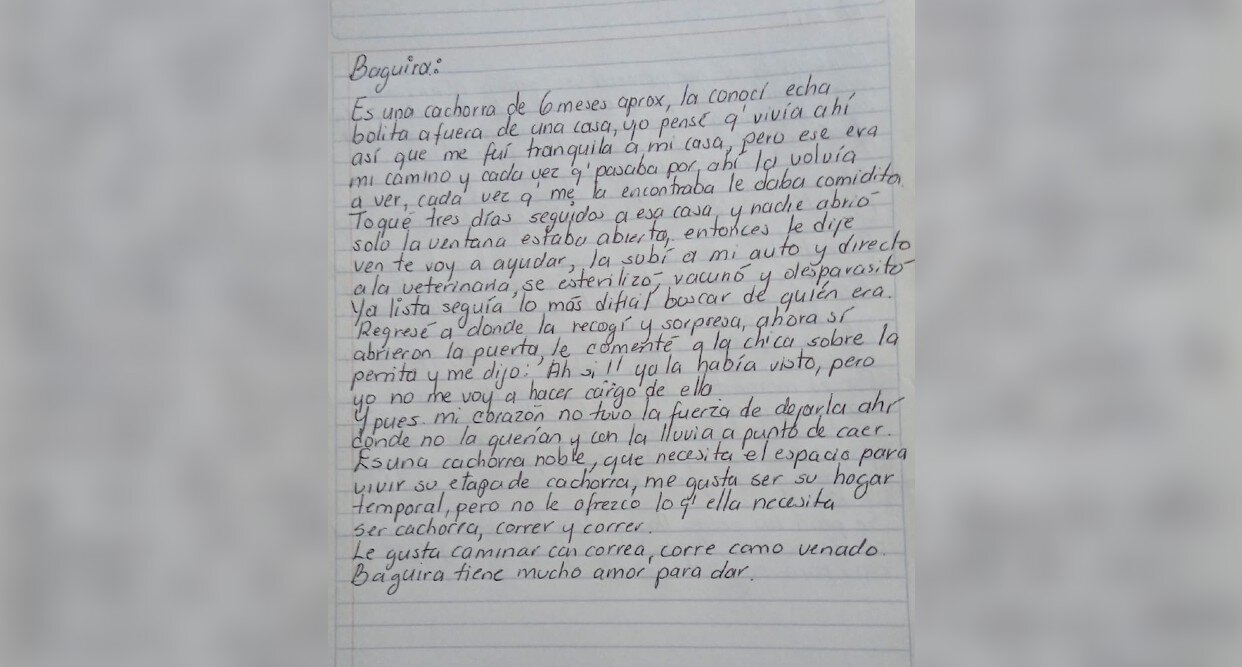 Baguira:
Es una cachorra de 6 meses aprox, la conocí echa
bolita afuera de una casa, yo pensé q' vivía ahí
así que me fuí tranquila a mi casa, pero ese era
mi camino y cada vez q' pasaba por ahí la volvía
a ver, cada vez q' me la encontraba le daba comidita.
Toqué tres días seguidos a esa casa y nadie abrió
solo la ventana estaba abierta, entonces le dije
ven te voy a ayudar, la subí a mi auto y directo
a la veterinaria, se esterilizó, vacunó y desparasitó
Ya lista seguía lo más difícil buscar de quién era.
Regresé a donde la recogí y sorpresa, ahora sí
abrieron la puerta, le comenté a la chica sobre la
perrita y me dijo: Ah si!! ya la había visto, pero
yo no me voy a hacer cargo de ella
Y pues mi corazón no tuvo la fuerza de dejarla ahí
donde no la querían y con la lluvia a punto de caer.
Es una cachorra noble, que necesita el espacio para
vivir su etapa de cachorra, me gusta ser su hogar
temporal, pero no le ofrezco lo q' ella necesita
ser cachorra, correr y correr.
Le gusta caminar con correa, corre como venado.
Baguira tiene mucho amor para dar.